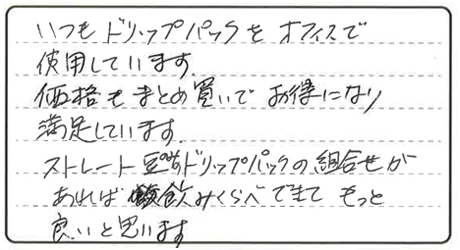 いつもドリップパックをオフィスで
使用しています.
価格もまとめ買いでお得になり
満足しています.
ストレート豆のみドリップパックの組合せが
あれば飲みくらべできてもっと
良いと思います